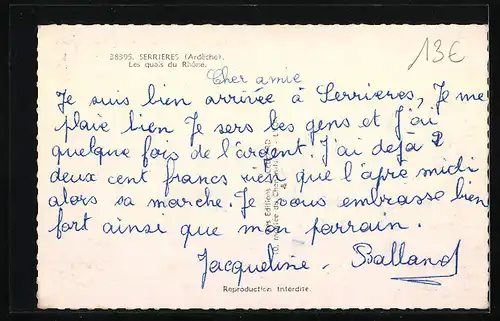 38395. SERRIERES (Ardèche).
Les quais du Rhône.
13€
Cher amie
Je suis bien arrivée à Serrieres, Je me
plaie bien Je sers les gens et J'ai
quelque fois de l'argent. J'ai dejà 2
deux cent francs rien que l'apre midi
alors sa marche. Je vous embrasse bien
fort ainsi que mon parrain.
Jacqueline. Balland
Reproduction Interdite.